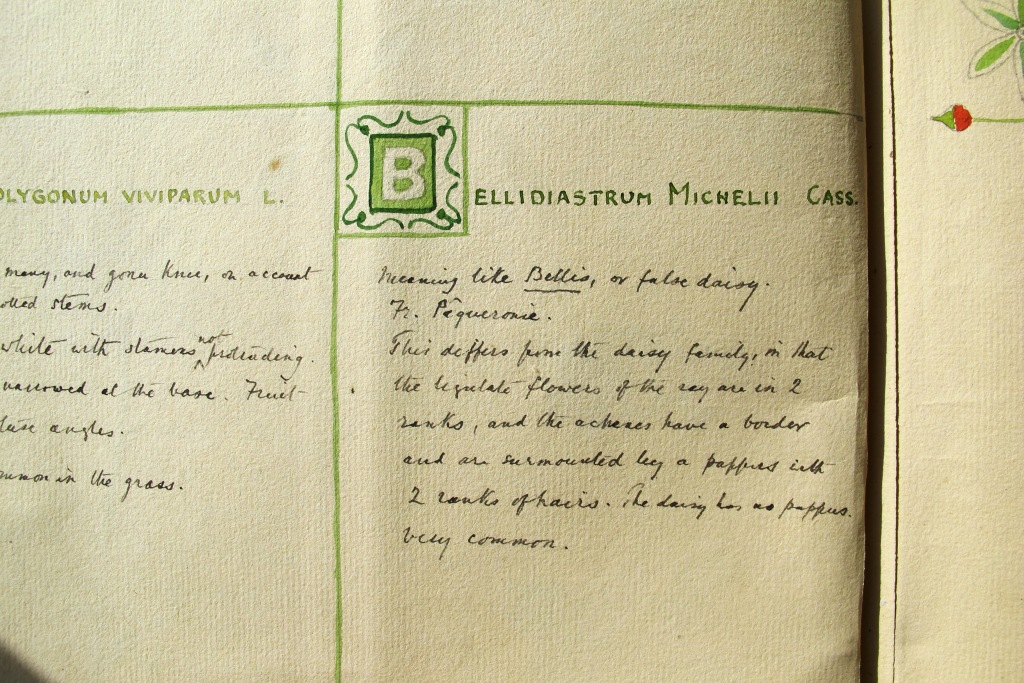 OLYGONUM VIVIPARUM L.
many, and gonu knee, on account
stems.
white with stamens not protruding.
narrowed at the base. Fruit-
angles.
in the grass.
BELLIDIASTRUM MICHELII CASS.
Meaning like Bellis, or false daisy.
Fr. Pâqueronie.
This differs from the daisy family, in that
the ligulate flowers of the ray are in 2
ranks, and the achenes have a border
and are surmounted by a pappus with
2 ranks of hairs. The daisy has no pappus.
Very common.